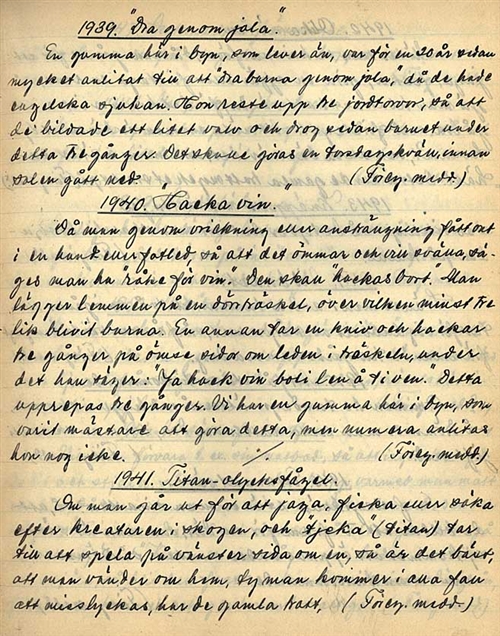 1939. "Dra genom jola."
En gumma här i byn, som lever än, var för en 20 år sedan
mycket anlitat till att dra barna genom jola, då de hade
engelska sjukan. Hon reste upp tre jordtorvor, så att
de bildade ett litet valv och drog sedan barnet under
detta tre gånger. Det skulle göras en torsdagskväll, innan
solen gått ned. (Föreg. medd.)
1940. "Hacka vin."
Då man genom vrickning eller ansträngning fått ont
i en hand eller fotled, så att det ömmar och vill svälla, sä-
ges man ha "råkt för vin." Den skall "hackas bort." Man
lägger lemmen på en dörrtröskel, över vilken minst tre
lik blivit burna. En annan tar en kniv och hackar
tre gånger på ömse sidor om leden i tröskeln, under
det han säger: "Ja hack vin bort i len å ti ven." Detta
upprepas tre gånger. Vi har en gumma här i byn, som
varit mästare att göra detta, men numera anlitas
hon nog icke. (Föreg. medd.)
1941. Titan-olycksfågel.
Om man går ut för att jaga, fiska eller söka
efter kreaturen i skogen, och tjeka (titan) tar
till att spela på vänster sida om en, så är det bäst,
att man vänder om hem, ty man kommer i alla fall
att misslyckas, har de gamla trott. (Föreg. medd.)